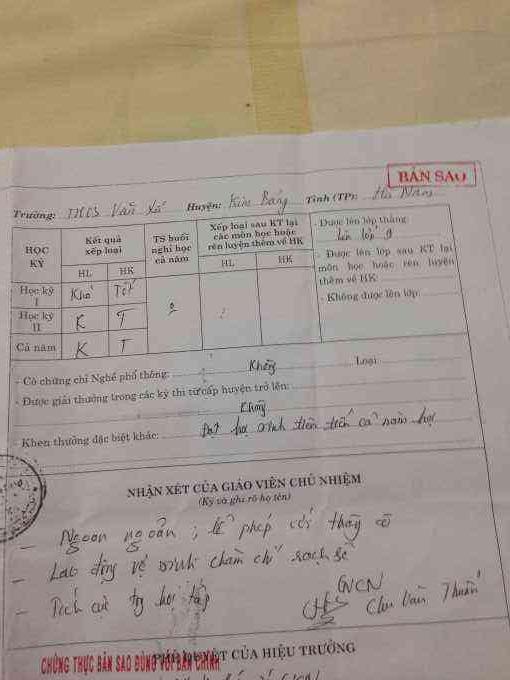 BẢN SAO
Trường: THCS Văn Xá Huyện: Kim Bảng Tỉnh (TP): Hà Nam
HỌC KỲ
Kết quả xếp loại
TS buổi nghỉ học cả năm
Xếp loại sau KT lại các môn học hoặc rèn luyện thêm về HK
HL HK HL HK
Học kỳ I Khá Tốt
Học kỳ II K T
Cả năm K T
2
- Được lên lớp thẳng:
Lên lớp 9
- Được lên lớp sau KT lại môn học hoặc rèn luyện thêm về HK:
- Không được lên lớp:
- Có chứng chỉ Nghề phổ thông: Không Loại
- Được giải thưởng trong các kỳ thi từ cấp huyện trở lên:
Không
- Khen thưởng đặc biệt khác: Đạt học sinh tiên tiến cả năm học
NHẬN XÉT CỦA GIÁO VIÊN CHỦ NHIỆM
(Ký và ghi rõ họ tên)
- Ngoan ngoãn; lễ phép với thầy cô
- Lao động vệ sinh chăm chỉ sạch sẽ
- Tích cực học tập
GVCN
Chu Văn Thuấn
CHỨNG THỰC BẢN SAO ĐÚNG VỚI BẢN CHÍNH
PHÊ DUYỆT CỦA HIỆU TRƯỞNG